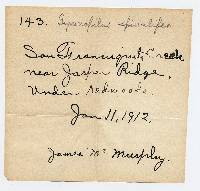 143. Gymnopilus spectabilis
San Francisquito Creek
near Jasper Ridge.
Under redwoods.
Jan 11, 1912.
James Mc Murphy.